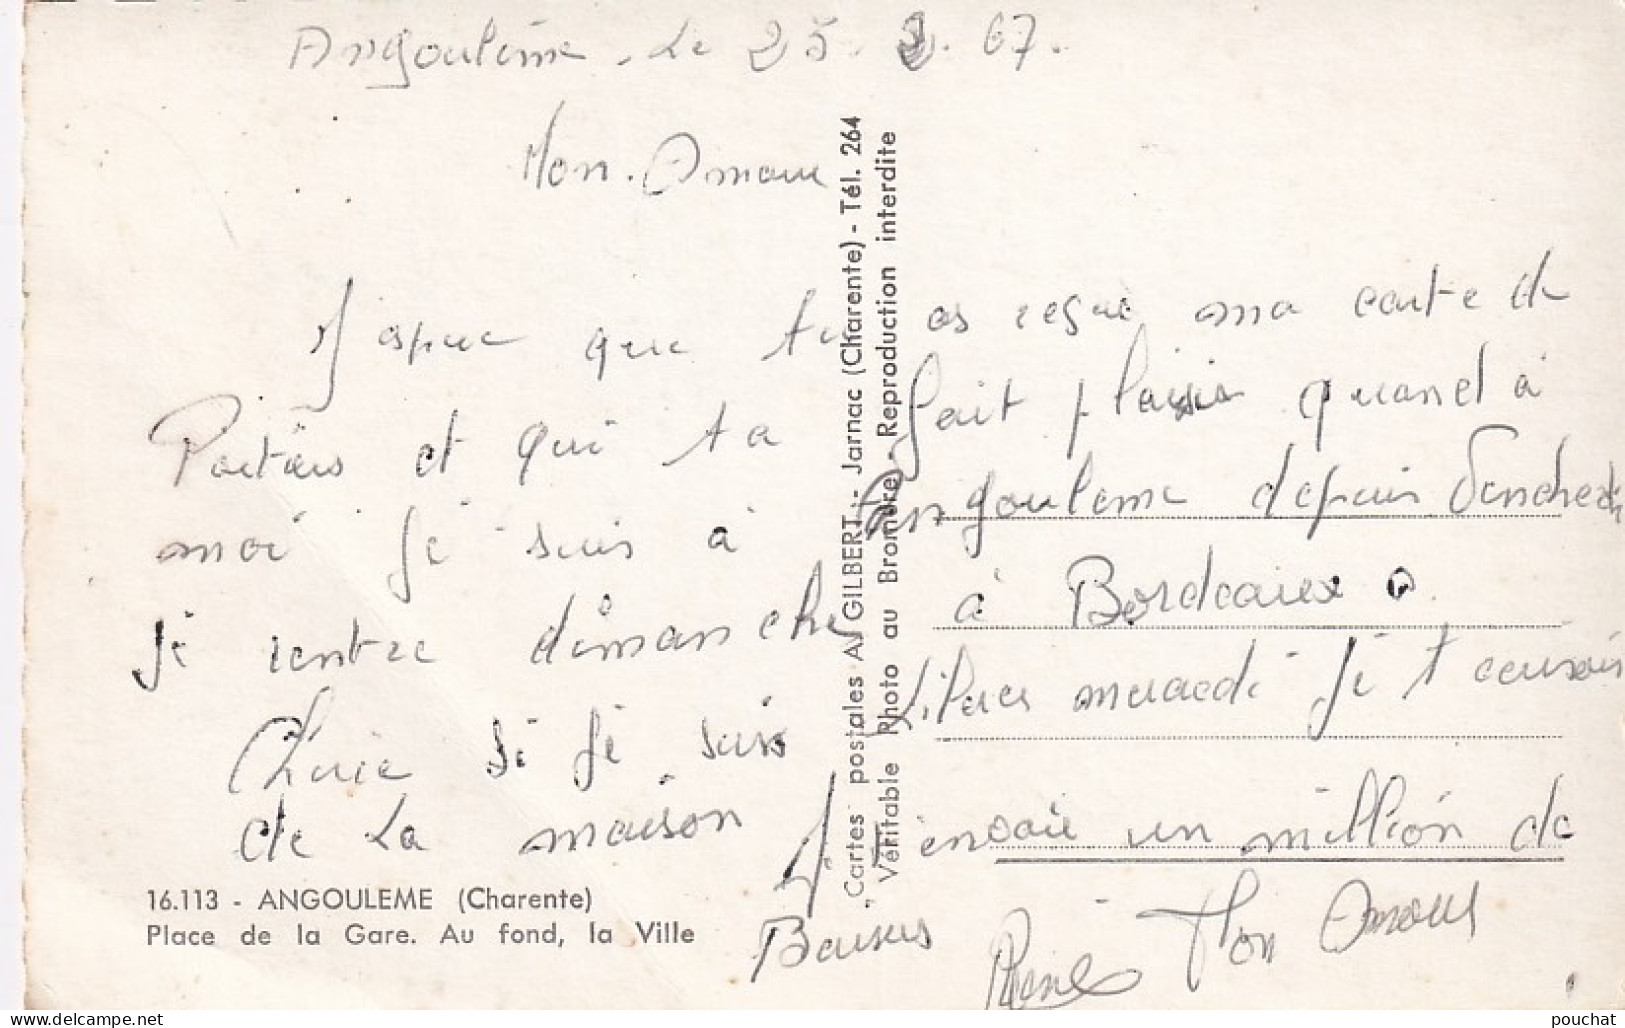 Angoulême. Le 25. 2. 67.
Mon. Amour
J espere que tu as reçue ma carte de
Poitiers et qui ta fait plaisir quand à
moi je suis à Angouleme depuis Vendredi
je rentre dimanche à Bordeaux
Cherie si je suis Liberer mercredi je t
de la maison
J envoie un million de
Baisers Mon Amour
René
16.113 - ANGOULEME (Charente)
Place de la Gare. Au fond, la Ville
Cartes postales A. GILBERT - Jarnac (Charente) - Tél. 264
Véritable Photo au Bromure - Reproduction interdite
pouchat